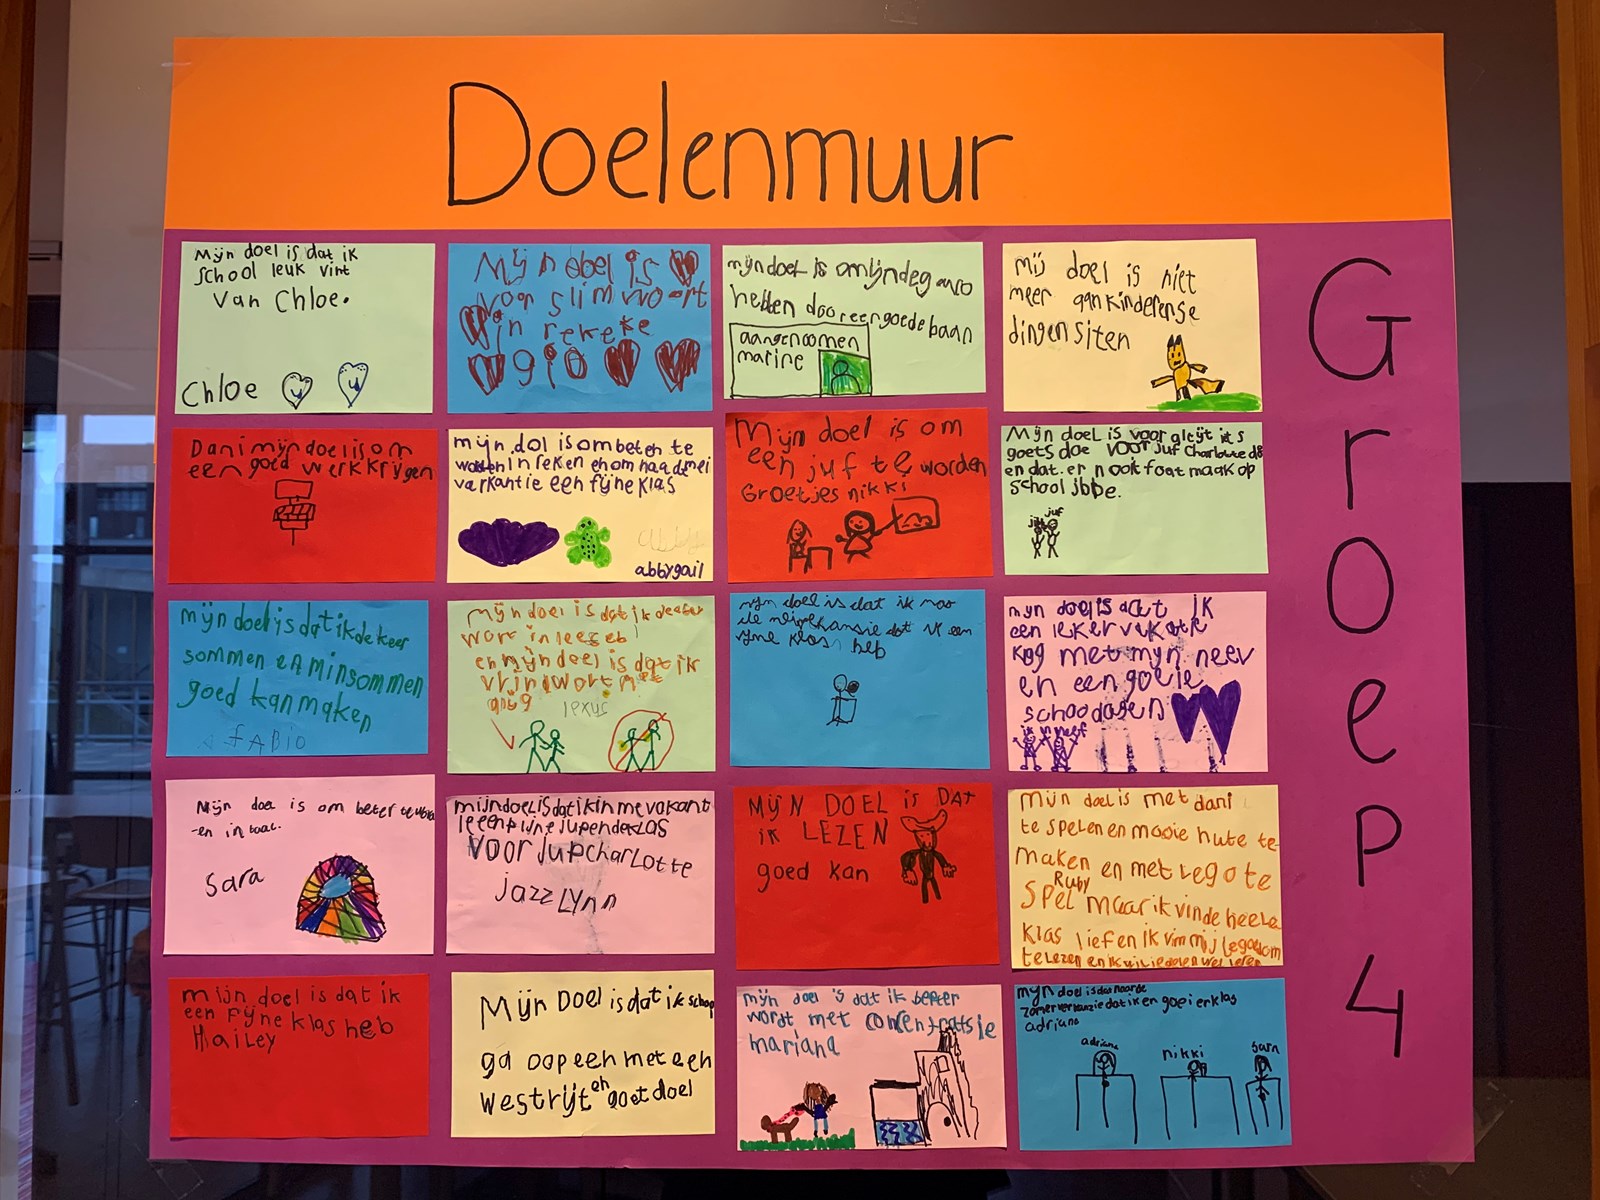 Doelenmuur
Groep 4
Mijn doel is dat ik
school leuk vint
van Chloe.
Chloe
Mijn doel is
voor slim woort
in rekeke
gio
mijn doel is omijndeg auro
hebben door eer goede baan
aangenoomen
marine
mij doel is niet
meer aan kinderense
dingen siten
Dani mijn doel is om
een goed werk krijgen
mijn dol is om beten te
worden in reken en om na de mei
varkantie een fijne klas
abbygail
Mijn doel is om
een juf te worden
Groetjes nikki
Mijn doel is voor altijt its
goets doe voor juf Charlotte
en dat er n ook foat maak op
school
juf
mijn doel is dat ik de keer
sommen en minsommen
goed kan maken
fABio
Mijn doel is dat ik
wort in
en mijn doel is dat ik
lexus
mijn doel is dat ik nas
dat ik een
fijne klas heb
mijn doel is dat ik
een leker vakatie
krijg met mijn neev
en een goeie
schoodagen
ik n neef
Mijn doel is om beter te
-en in taal.
Sara
mijn doel is dat ik in me vakant
ie een pijne jupendeklas
voor jupcharlotte
jazzLynn
MijN DOEL is DAT
ik LEZEN
goed kan
Mijn doel is met dani
te spelen en mooie hute te
maken en met lego te
Ruby
spel maar ik vinde heele
klas lief en ik vim mij legodom
te lezen en ik wil
mijn doel is dat ik
een fijne klas heb
Hailey
Mijn Doel is dat ik schap
ga oop een met een
westrijt en goet doel
mijn doel is dat ik beeter
wordt met concentratsie
mariana
mijn doel is das naarde
zomer verkanzie dat ik en goei erklas
adriana
adriana
nikki
sarn